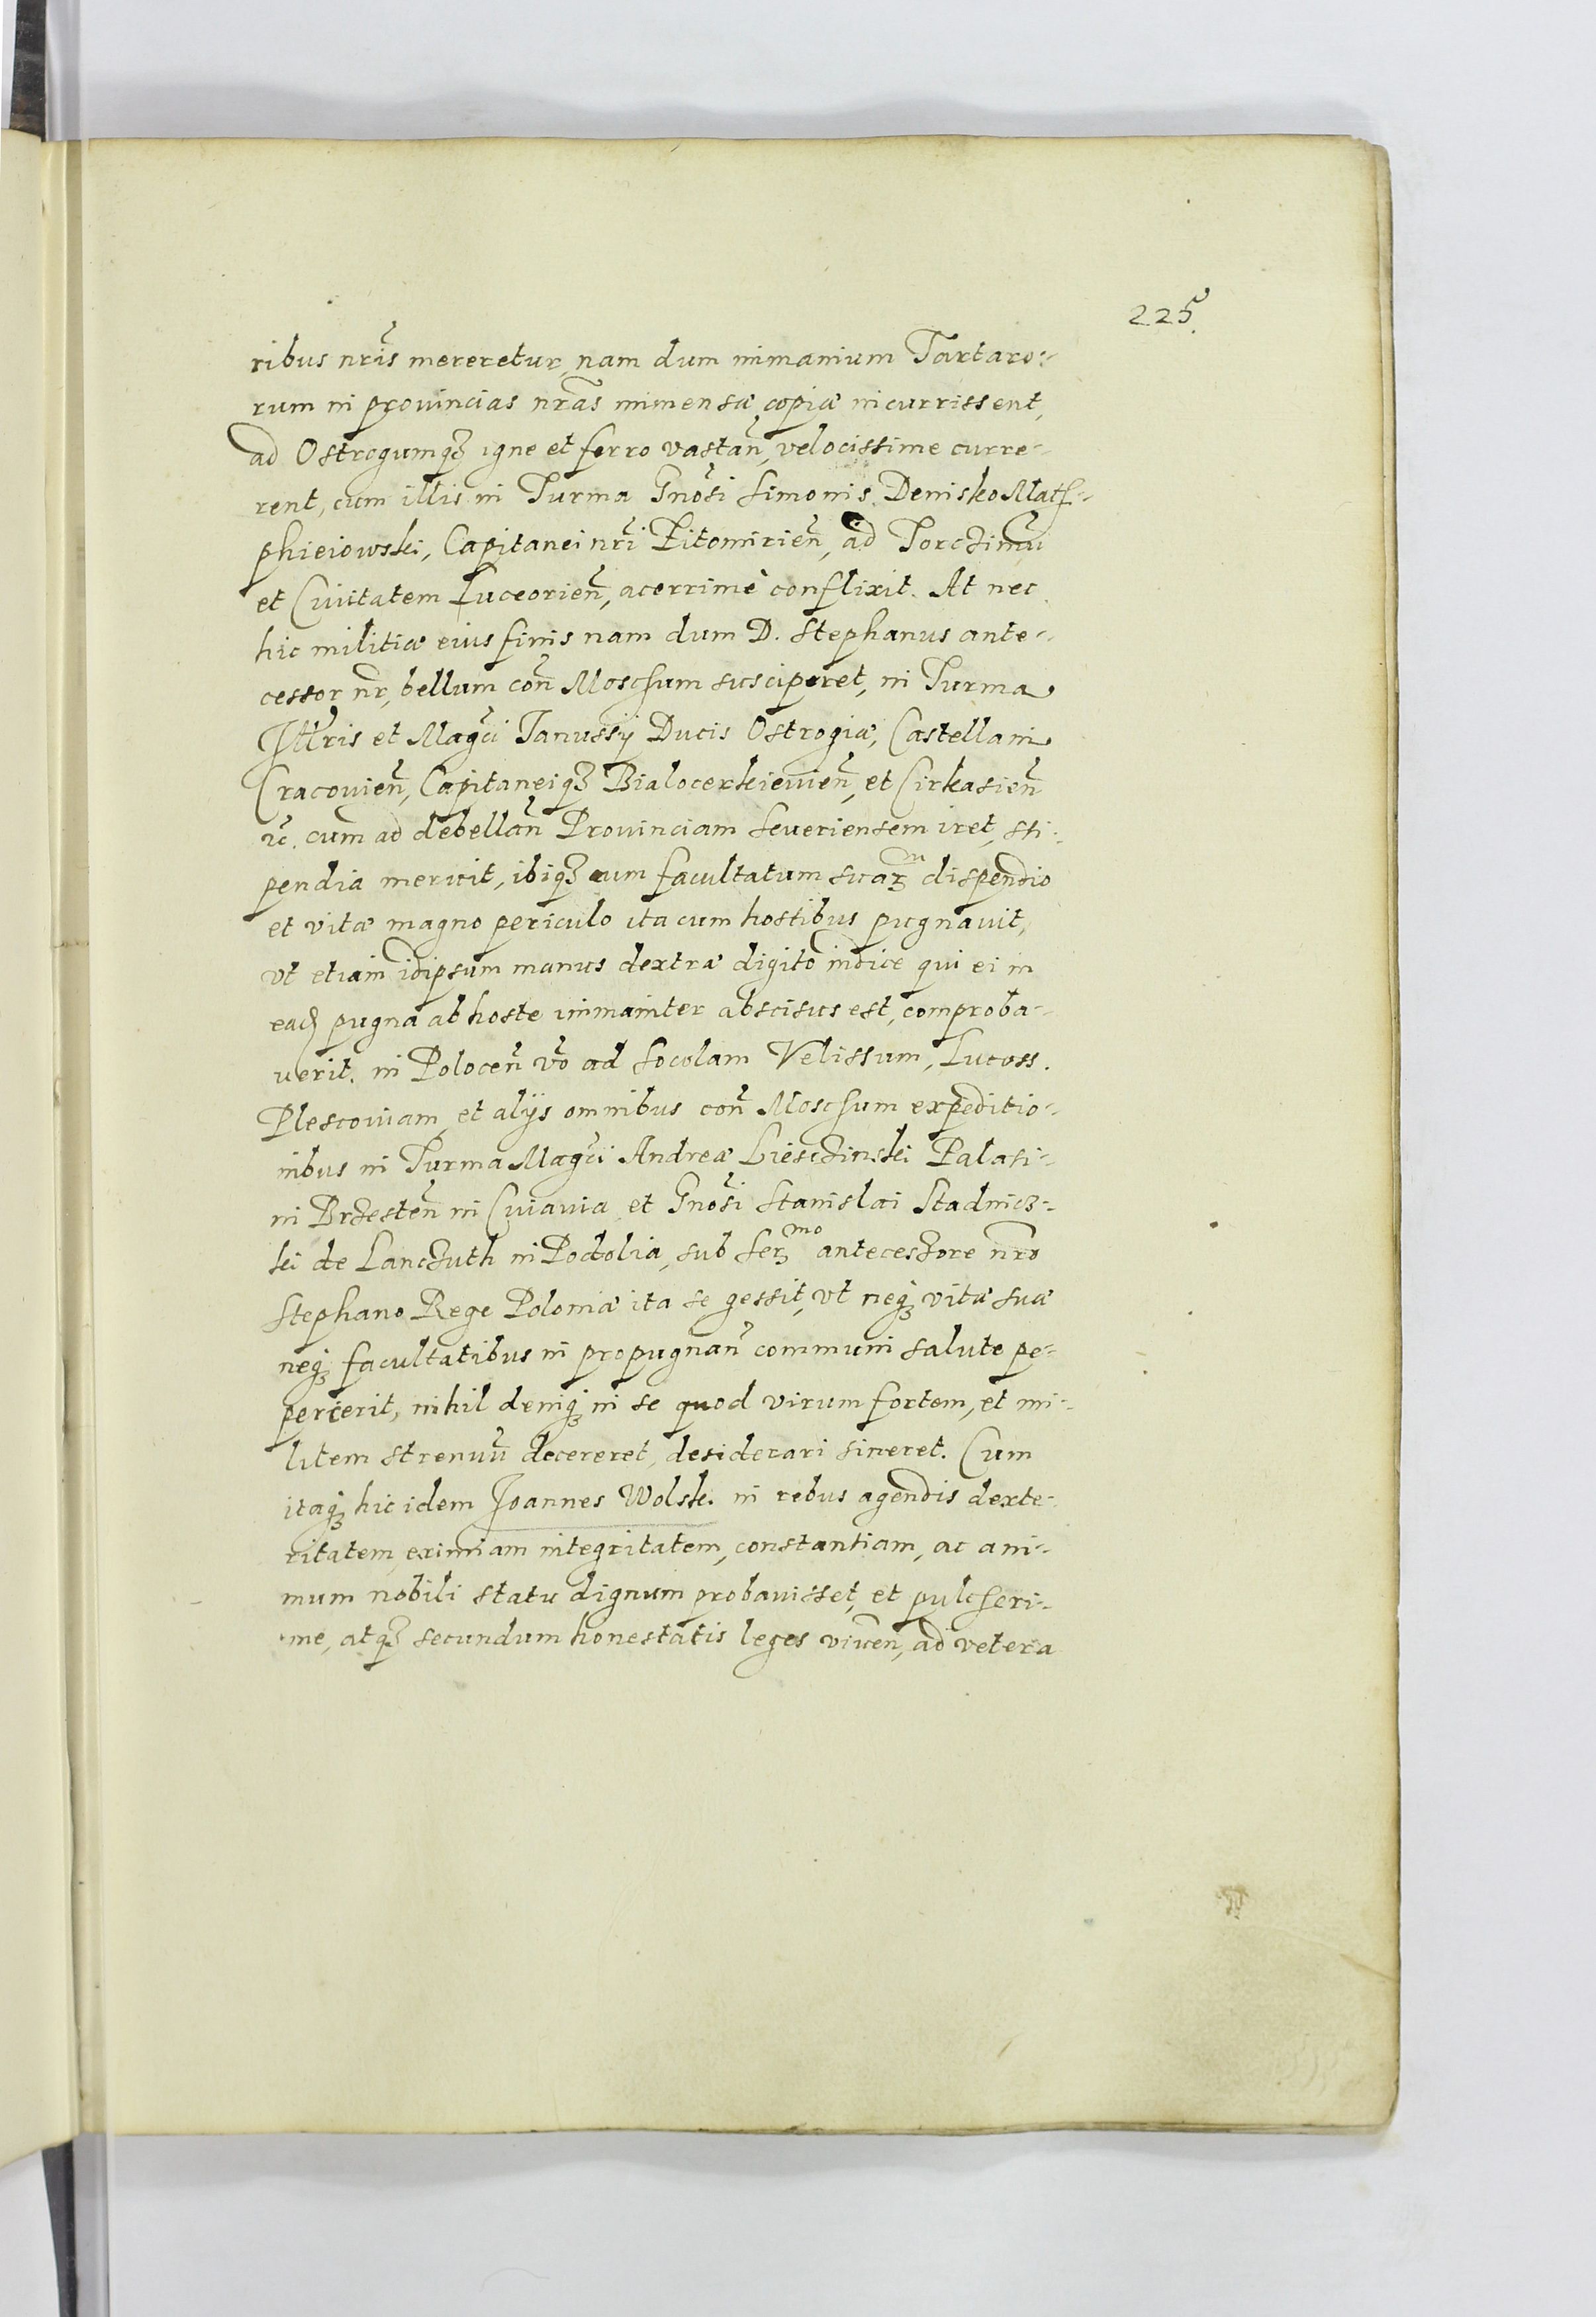 225.
ribus nris mereretur, nam dum immanium Tartaro-
rum in prouincias nras immensæ copiæ incurrissent,
ad Ostrogumq₃ igne et ferro vastan, velocissime curre-
rent, cum illis in Turma Gnosi Simonis Denisko Mat-
phieiowski, Capitanei nri Zitomirien, ad Torczimu
et Ciuitatem Luceorien, acerrimè conflixit. At nec
hic militiæ eius finis nam dum D. Stephanus ante-
cessor nr, bellum con Moschum susciperet, in Turma
Illris et Magci Janussy Ducis Ostrogiæ, Castellani
Cracouien, Capitaneiq₃ Bialocerkieuien, et Cirkasien
cum ad debellan Prouinciam Seueriensem iret, sti-
pendia meruit, ibiq₃ cum facultatum suar dispendio
et vitæ magno periculo ita cum hostibus pugnauit,
vt etiam idipsum manus dextræ digito indice qui ei in
ead pugna ab hoste immaniter abscisus est, comproba-
uerit. in Polocen vo ad Socolam Velissum, Lucoss.
Plescouiam, et alijs omnibus con Moschum expeditio-
nibus in Turma Magci Andreæ Liesczinski Palati-
ni Brzesten in Cuiauia, et Gnosi Stanislai Stadnicz-
ki de Lanczuth in Podolia, sub Sermo antecessore nro
Stephano Rege Poloniæ ita se gessit, vt neq₃ vitæ suæ
neq₃ facultatibus in propugnan communi salute pe-
percerit, nihil deniq₃ in se quod virum fortem, et mi-
litem strenuu decereret, desiderari sineret. Cum
itaq₃ hic idem Joannes Wolsk. in rebus agendis dexte-
ritatem, eximiam integritatem, constantiam, ac ani-
mum nobili statu dignum probauisset, et pulcheri-
me, atq₃ secundum honestatis leges viuen, ad vetera